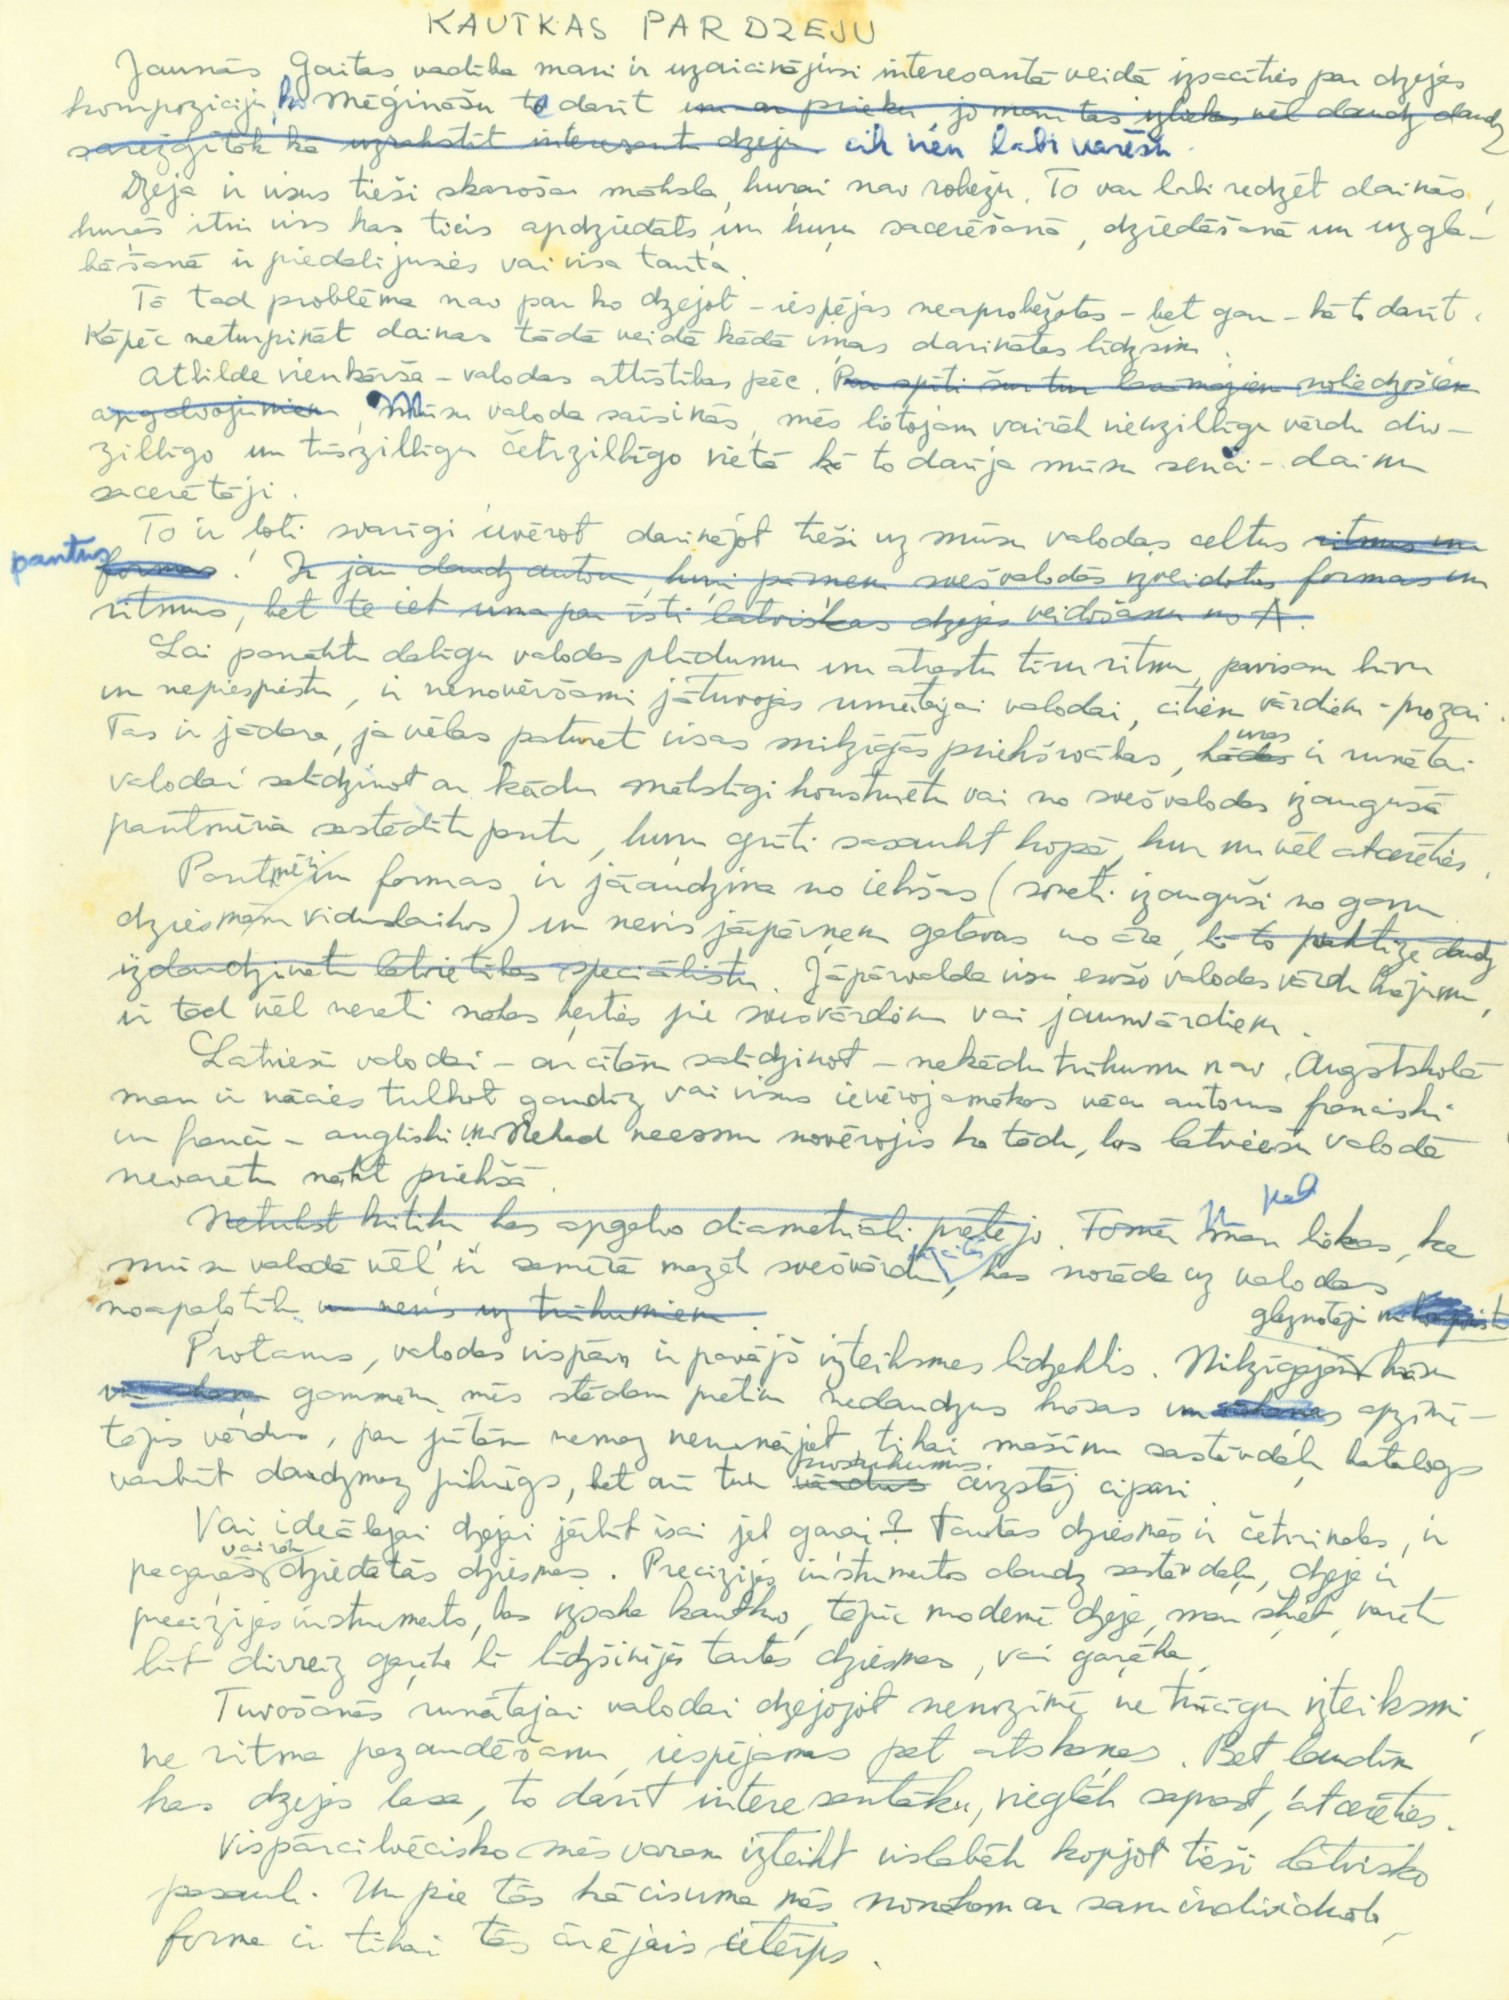 KAUTKAS PAR DZEJU
Jaunās Gaitas vadība mani ir uzaicinājusi interesantā veidā izsacīties par dzejas
kompoziciju, ko mēģināšu to darīt un ar prieku, jo man tas izliekas vēl daudz daudz
sarežģītāk kā uzrakstīt interesantu dzeju cik vien labi varēšu.
Dzeja ir visus tieši skaroša māksla, kurai nav robežu. To var labi redzēt dainās,
kurās itin viss kas ticis apdziedāts un kuru sacerēšanā, dziedāšanā un uzgla-
bāšanā ir piedalījusies vai visa tauta.
Tā tad problēma nav par ko dzejot – iespējas neaprobežotas – bet gan – kā to darīt.
Kāpēc neturpināt dainas tādā veidā kādā viņas darinātas līdzšim.
Atbilde vienkārša – valodas attīstības pēc. Par spīti šur tur lasāmajiem noliedzošiem
apgalvojumiem, Mūsu valoda saīsinās, mēs lietojam vairāk vienzilbīgu vārdu div-
zilbīgo un trīszilbīgu četrzilbīgo vietā kā to darīja mūsu senči – dainu
sacerētāji.
To ir ļoti svarīgi ievērot darinājot tieši uz mūsu valodas celtus ritmus un
pantus
formas. Ir jau daudz autoru, kuŗi pārņem svešvalodās izveidotas formas un
ritmus, bet te iet runa par īsti latviskas dzejas veidošanu no A.
Lai panāktu dabīgu valodas plūdumu un atrastu tīru ritmu, pavisam brīvu
un nepiespiestu, ir nenovēršami jātuvojas runātajai valodai, citiem vārdiem – prozai.
Tas ir jādara, ja vēlas paturēt visas milzīgās priekšrocības, kādas ir runātai
valodai salīdzinot ar kādu mākslīgi konstruētu vai no svešvalodas izaugušā
pantmērā sastādītu pantu, kuŗu grūti sasaukt kopā, kur nu vēl atcerēties.
Pantmēri un formas ir jāaudzina no iekšas (soneti izauguši no ganu
dziesmām viduslaikos) un nevis jāpārņem gatavas no āra, kā to praktizē daudz
izdaudzinātu latvietības speciālistu. Jāpārvalda visu esošo valodas vārdu krājumu,
ir tad vēl nereti nākas ķerties pie svešvārdiem vai jaunvārdiem.
Latviešu valodai – ar citām salīdzinot – nekādu trūkumu nav. Augstskolā
man ir nācies tulkot gandrīz vai visus ievērojamākos vācu autorus franciski
un franču – angliski un Nekad neesmu novērojis ko tādu, kas latviešu valodā
nevarētu nākt priekšā.
Netrūkst kritiķu, kas apgalvo diametrāli pretējo. Tomēr man liekas, ka
pat
mūsu valodā vēl ir samērā mazāk svešvārdu, kas norāda uz valodas
noapaļotību un nevis uz trūkumiem.
gleznotāji
Protams, valodas vispār ir pavājš izteiksmes līdzeklis. Milzīgajām krāsu
gammām mēs stādam pretim nedaudzus krāsas apzīmē-
tājus vārdus, par jūtām nemaz nerunājot, tikai mašīnu sastāvdaļu katalogs
varbūt daudzmaz pilnīgs, bet arī tur vārdus aizstāj cipari.
Vai ideālajai dzejai jābūt īsai jeb garai? Tautas dziesmās ir četrrindes, ir
vairāk
pagarās dziedātās dziesmas. Precizijas instrumentos daudz sastāvdaļu, dzeja ir
precizijas instruments, kas izsaka kautko, tāpēc modernā dzeja, man šķiet, varētu
būt divreiz garāka kā līdzšinējās tautas dziesmas, vai garāka.
Tuvošanās runātajai valodai dzejojot nenozīmē ne trūcīgu izteiksmi,
ne ritma pazaudēšanu, iespējamas pat atskaņas. Bet ļaudīm
kas dzejas lasa, to darīt interesantāku, vieglāk saprast, atcerēties.
Vispārcilvēcisko mēs varam izteikt vislabāk kopjot tieši latvisko
pasauli. Un pie tās kāciņuma mēs nonākam ar savu individuālo,
forma ir tikai tās ārējais ietērps.